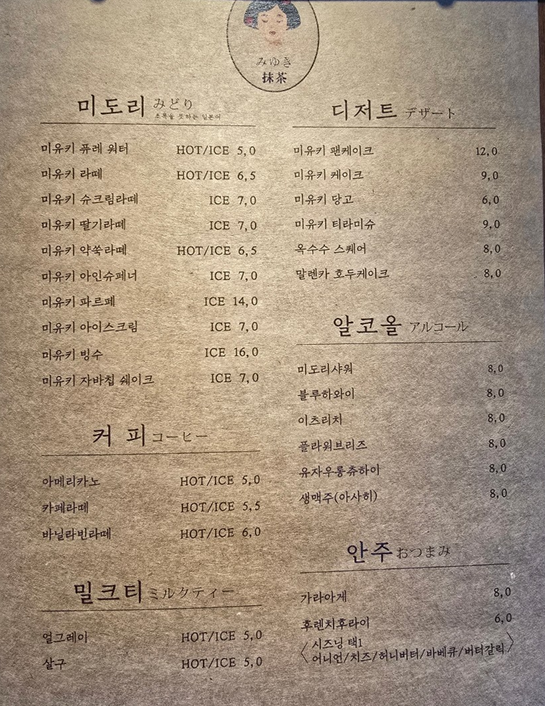 みゆき
抹茶
미도리 みどり
초록을 뜻하는 일본어
미유키 퓨레 워터 HOT/ICE 5,0
미유키 라떼 HOT/ICE 6,5
미유키 슈크림라떼 ICE 7,0
미유키 딸기라떼 ICE 7,0
미유키 약쑥라떼 HOT/ICE 6,5
미유키 아인슈페너 ICE 7,0
미유키 파르페 ICE 14,0
미유키 아이스크림 ICE 7,0
미유키 빙수 ICE 16,0
미유키 자바칩 쉐이크 ICE 7,0
커 피 コーヒー
아메리카노 HOT/ICE 5,0
카페라떼 HOT/ICE 5,5
바닐라빈라떼 HOT/ICE 6,0
밀크티 ミルクティー
얼그레이 HOT/ICE 5,0
살구 HOT/ICE 5,0
디저트 デザート
미유키 팬케이크 12,0
미유키 케이크 9,0
미유키 당고 6,0
미유키 티라미슈 9,0
옥수수 스퀘어 8,0
말렌카 호두케이크 8,0
알코올 アルコール
미도리샤워 8,0
블루하와이 8,0
이츠리치 8,0
플라워브리즈 8,0
유자우롱츄하이 8,0
생맥주(아사히) 8,0
안주 おつまみ
가라아게 8,0
후렌치후라이 6,0
시즈닝 택1
어니언/치즈/허니버터/바베큐/버터갈릭